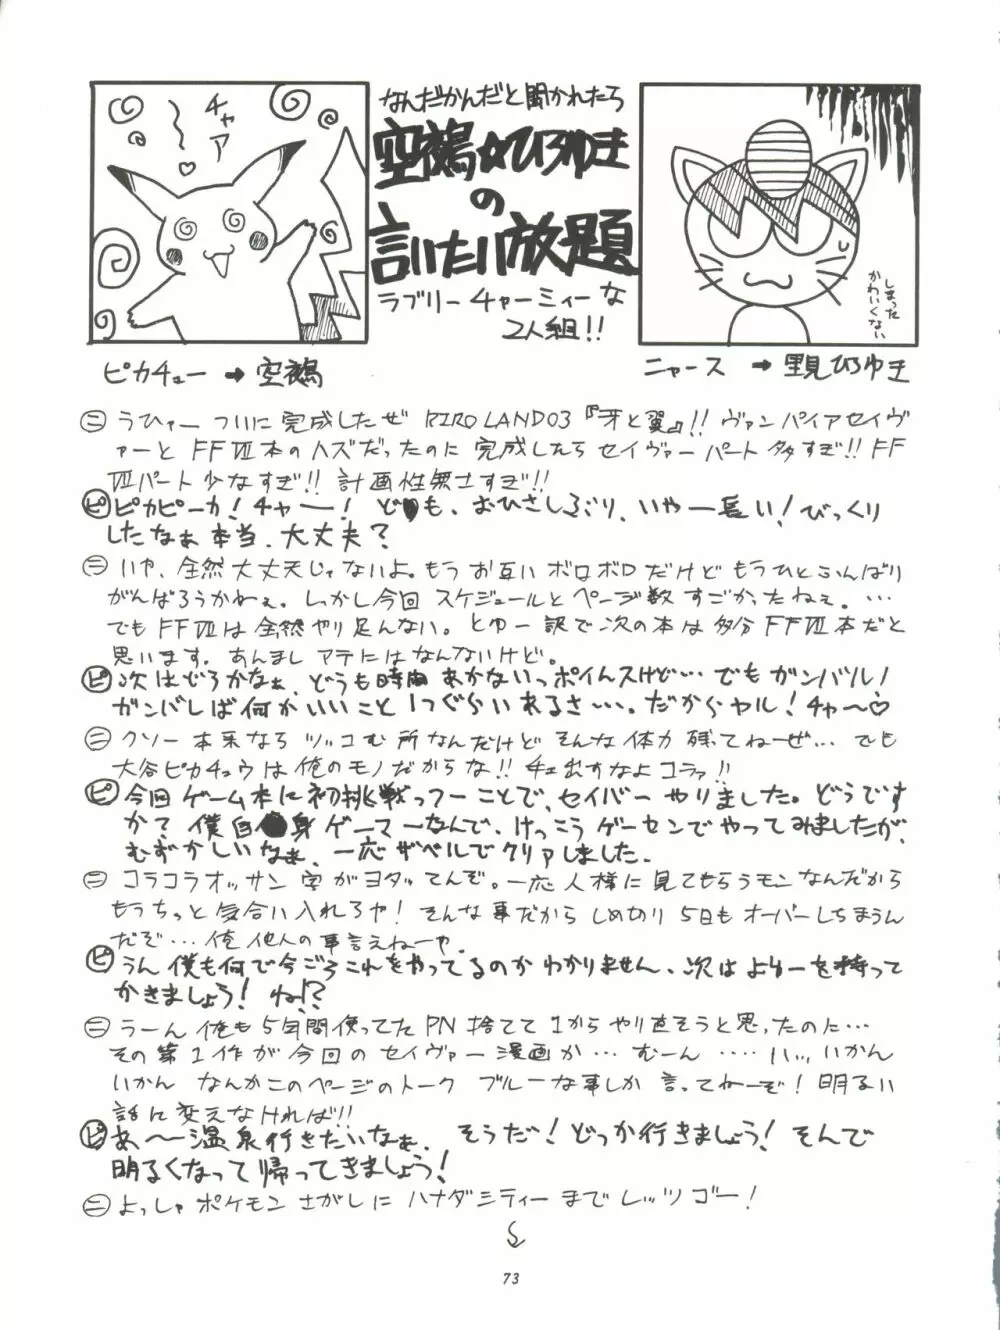 チャア
〜〜♡
なんだかんだと聞かれたら
空鵺☆ひろゆき
の
言いたい放題
ラブリーチャーミィーな
2人組!!
しまった
かわいくない
ピカチュー→空鵺
ニャース→里見ひろゆき
㊁うひゃー ついに完成したぜ RIROLAND03『牙と翼』!! ヴァンパイアセイヴ
ァーとFFⅦ本のハズだったのに完成したらセイヴァーパート多すぎ!! FF
Ⅶパート少なすぎ!! 計画性無さすぎ!!
ピ ピカピーカ! チャー! ども、おひさしぶり、いやー長い! びっくり
したなぁ本当、大丈夫?
ニ いや、全然大丈夫じゃないよ。もうお互いボロボロだけどもうひとふんばり
がんばろうかねぇ。しっかし今回スケジュールとページ数すごかったねぇ。…
でもFFⅦは全然やり足んない。とゆー訳で次の本は多分FFⅦ本だと
思います。あんましアテにはなんないけど。
ピ 次はどうかなぁ、どうも時間あかないっポイんスけど…でもガンバルノ
ガンバレば何かいいこと1つぐらいあるさ…。だからヤル! チャ〜♡
ニ クソー本来ならツッコむ所なんだけどそんな体力残ってねーぜ…でも
大谷ピカチュウは俺のモノだからな!! チェ出すなよコラァ!!
ピ 今回ゲーム本に初挑戦っつーことで、セイバーやりました。どうです
か? 僕自身ゲーマーなんで、けっこうゲーセンでやってみましたが、
むずかしいなぁ、一応ザベルでクリアしました。
ニ コラコラオッサン字がヨタってんぞ。一応人様に見てもらうモンなんだから
もうちっと気合い入れろヤ! そんな事だからしめ切り5日もオーバーしちまうん
だぞ…俺他人の事言えねーや。
ピ うん僕も何で今ごろこれをやってるのかわかりません、次はよゆーを持って
かきましょう! ね!?
ニ うーん俺も5年間使ってたPN捨てて1からやり直そうと思ったのに…
その第1作が今回のセイヴァー漫画か…むーん……ハッ、いかん
いかん なんかこのページのトーク ブルーな事しか言ってねーぞ! 明るい
話に変えなければ!!
ピ あ〜温泉行きたいなぁ、そうだ! どっか行きましょう! そんで
明るくなって帰ってきましょう!
ニ よっしゃポケモンさがしにハナダシティーまでレッツゴー!
73